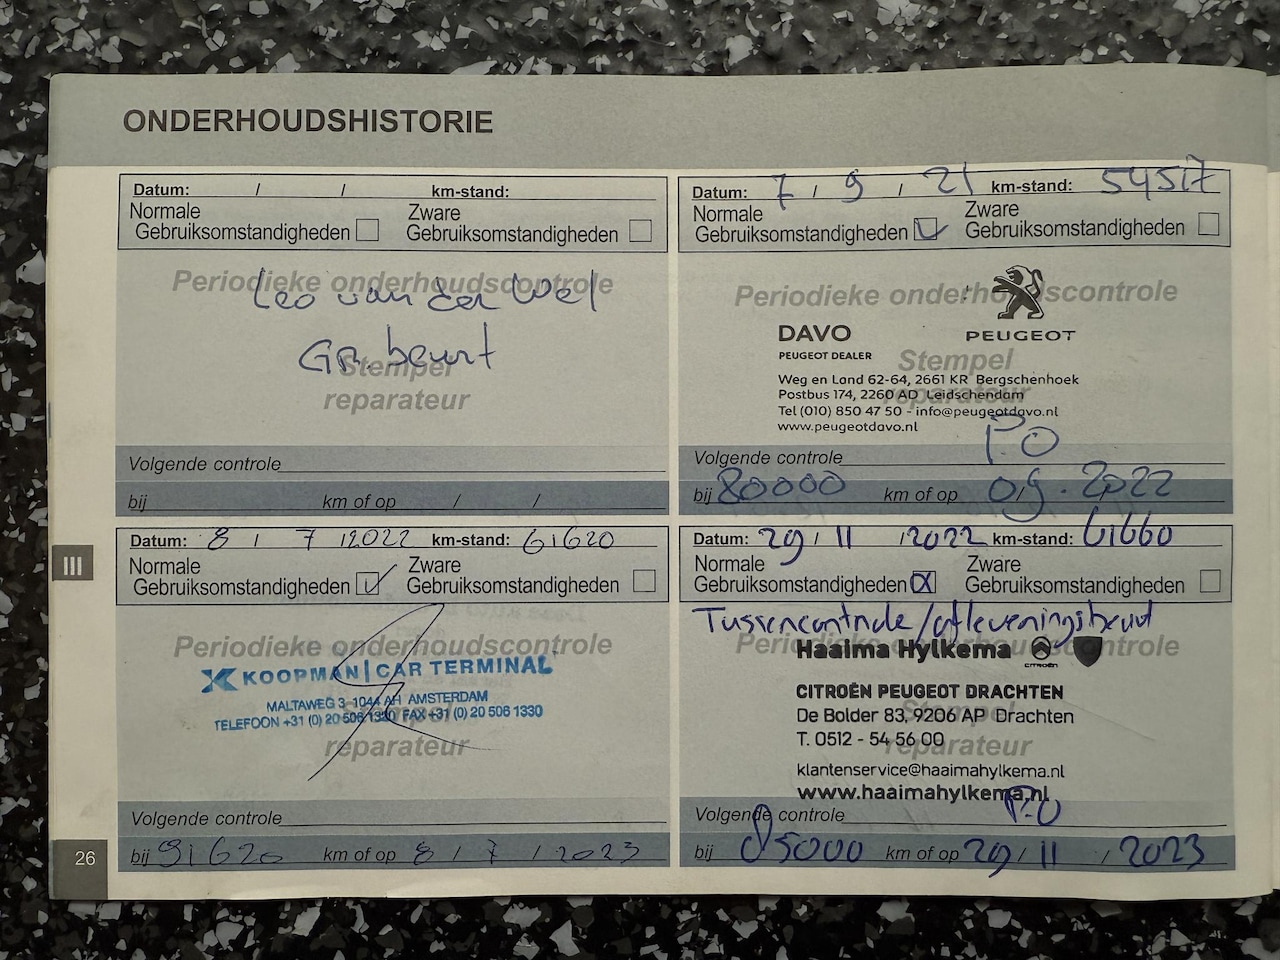 ONDERHOUDSHISTORIE
Datum: / / km-stand:
Normale Zware
Gebruiksomstandigheden Gebruiksomstandigheden
Periodieke onderhoudscontrole
Leo van der Wel
Gr. beurt
Stempel
reparateur
Volgende controle
bij km of op / /
Datum: 7 / 9 / 21 km-stand: 54517
Normale Zware
Gebruiksomstandigheden Gebruiksomstandigheden
Periodieke onderhoudscontrole
DAVO PEUGEOT
PEUGEOT DEALER
Stempel
Weg en Land 62-64, 2661 KR Bergschenhoek
reparateur
Postbus 174, 2260 AD Leidschendam
Tel (010) 850 47 50 - info@peugeotdavo.nl
www.peugeotdavo.nl
P.O
Volgende controle
bij 80000 km of op 09 . 2022
Datum: 8 / 7 / 2022 km-stand: 61620
Normale Zware
Gebruiksomstandigheden Gebruiksomstandigheden
Periodieke onderhoudscontrole
KOOPMAN|CAR TERMINAL
MALTAWEG 3 1044 AH AMSTERDAM
TELEFOON +31 (0) 20 506 1330 FAX +31 (0) 20 506 1330
Stempel
reparateur
Volgende controle
bij 91620 km of op 8 / 7 / 2023
Datum: 29 / 11 / 2022 km-stand: 61660
Normale Zware
Gebruiksomstandigheden Gebruiksomstandigheden
Tussencontrole/afleveringsbeurt
Periodieke onderhoudscontrole
Haaima Hylkema CITROËN
CITROËN PEUGEOT DRACHTEN
De Bolder 83, 9206 AP Drachten
Stempel
T. 0512 - 54 56 00
reparateur
klantenservice@haaimahylkema.nl
www.haaimahylkema.nl
P.O
Volgende controle
bij 85000 km of op 29 / 11 / 2023
III
26